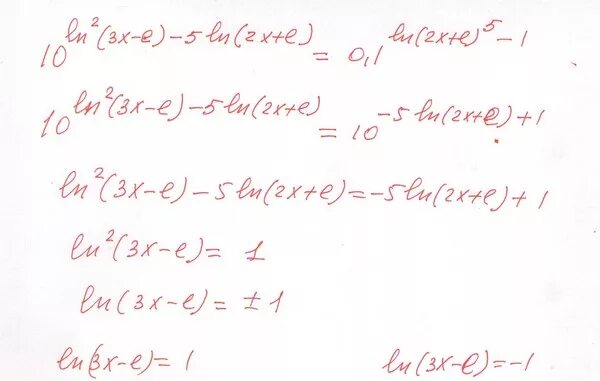 10^(ln²(3x-e)-5ln(2x+e)) = 0,1^(ln(2x+e)⁵-1)
10^(ln²(3x-e)-5ln(2x+e)) = 10^(-5ln(2x+e)+1)
ln²(3x-e)-5ln(2x+e)=-5ln(2x+e)+1
ln²(3x-e)= 1
ln(3x-e)= ±1
ln(3x-e)= 1 ln(3x-e)=-1